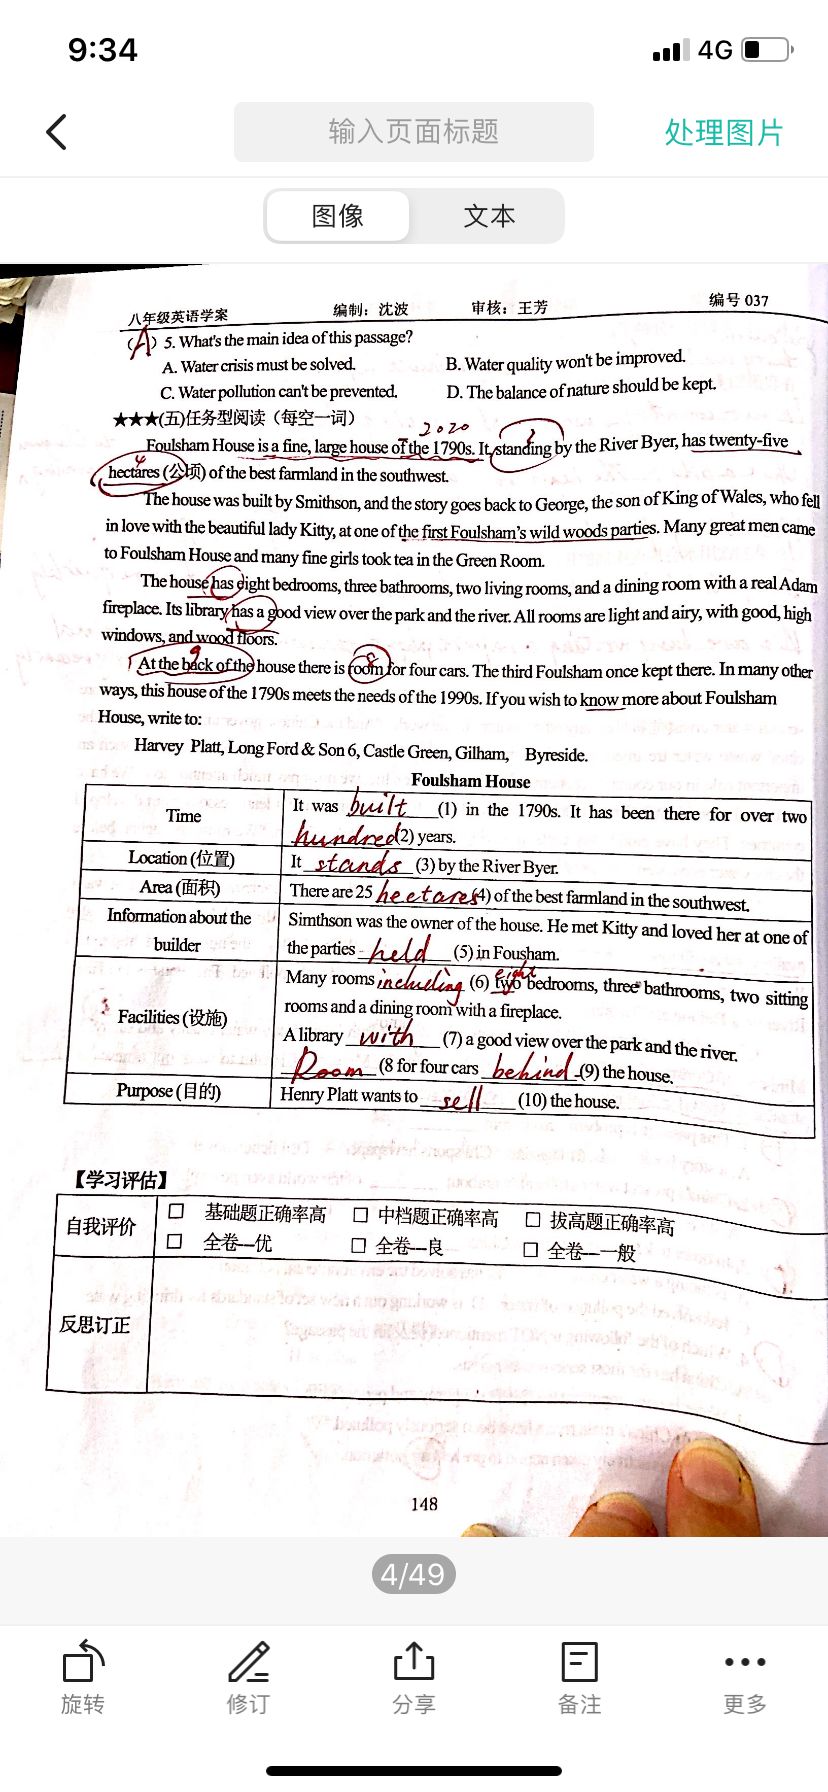 9:34
4G
输入页面标题
处理图片
图像
文本
八年级英语学案 编制：沈波 审核：王芳 编号 037
(A) 5. What's the main idea of this passage?
A. Water crisis must be solved. B. Water quality won't be improved.
C. Water pollution can't be prevented. D. The balance of nature should be kept.
★★★(五)任务型阅读（每空一词）
2020
Foulsham House is a fine, large house of the 1790s. It, standing by the River Byer, has twenty-five
4
hectares (公顷) of the best farmland in the southwest.
The house was built by Smithson, and the story goes back to George, the son of King of Wales, who fell
in love with the beautiful lady Kitty, at one of the first Foulsham's wild woods parties. Many great men came
to Foulsham House and many fine girls took tea in the Green Room.
The house has eight bedrooms, three bathrooms, two living rooms, and a dining room with a real Adam
fireplace. Its library has a good view over the park and the river. All rooms are light and airy, with good, high
windows, and wood floors.
9 8
At the back of the house there is room for four cars. The third Foulsham once kept there. In many other
ways, this house of the 1790s meets the needs of the 1990s. If you wish to know more about Foulsham
House, write to:
Harvey Platt, Long Ford & Son 6, Castle Green, Gilham, Byreside.
Foulsham House
Time
It was built (1) in the 1790s. It has been there for over two
hundred (2) years.
Location (位置)
It stands (3) by the River Byer.
Area (面积)
There are 25 hectares (4) of the best farmland in the southwest.
Information about the
builder
Simthson was the owner of the house. He met Kitty and loved her at one of
the parties held (5) in Fousham.
Facilities (设施)
eight
Many rooms including (6) two bedrooms, three bathrooms, two sitting
rooms and a dining room with a fireplace.
A library with (7) a good view over the park and the river.
Room (8 for four cars behind (9) the house.
Purpose (目的)
Henry Platt wants to sell (10) the house.
【学习评估】
自我评价
□ 基础题正确率高 □ 中档题正确率高 □ 拔高题正确率高
□ 全卷---优 □ 全卷---良 □ 全卷---一般
反思订正
148
4/49
旋转
修订
分享
备注
更多